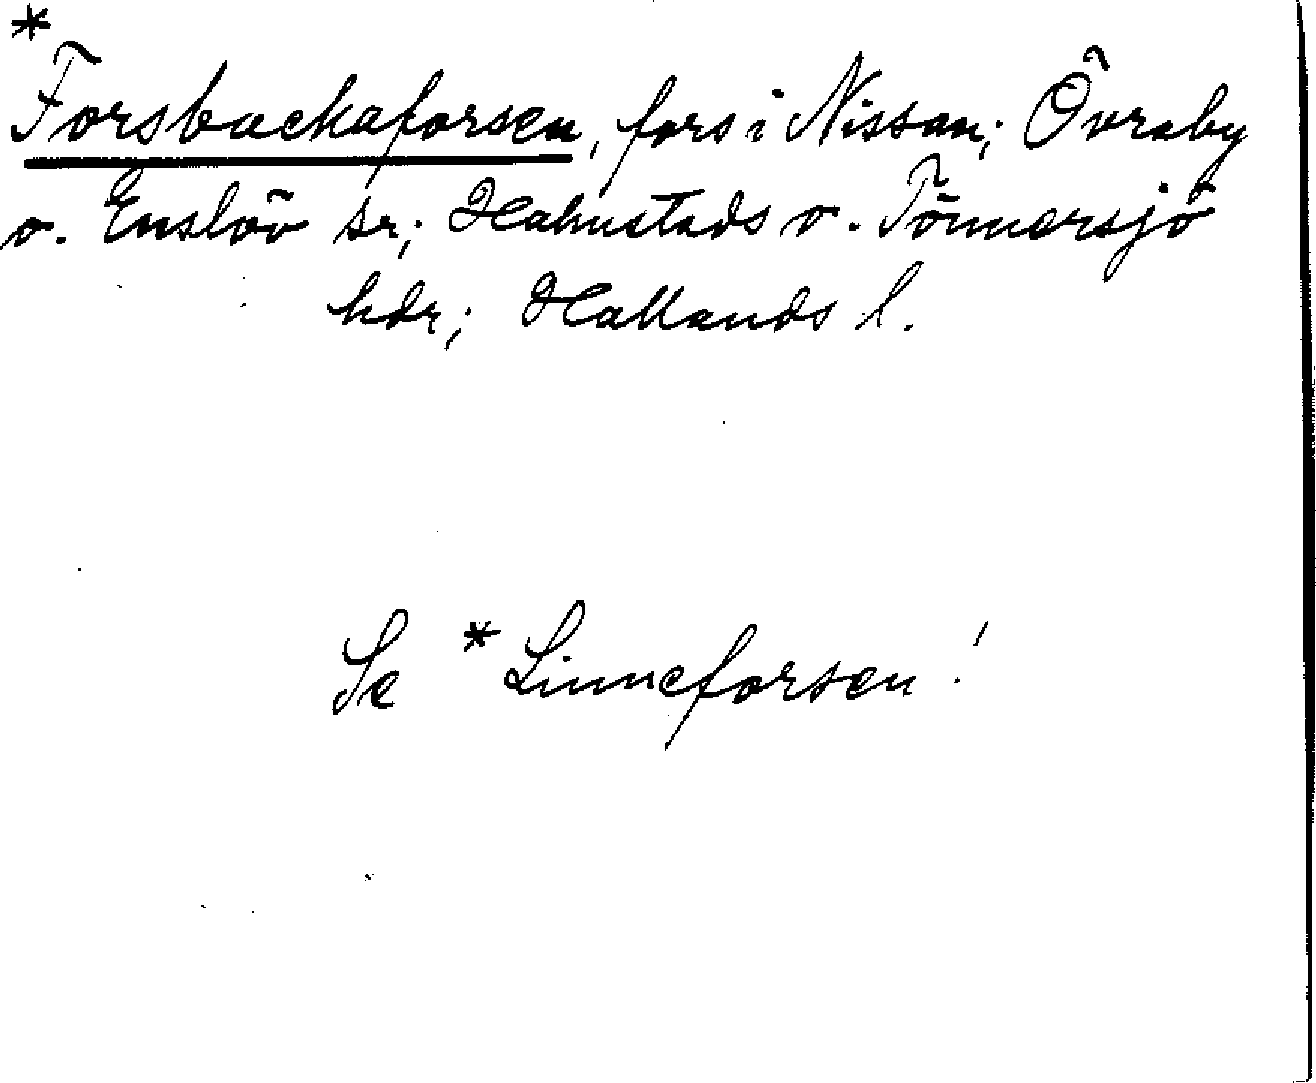 *
Forsbackaforsen, fors i Nissan; Övraby
o. Enslöv sr; Halmstads o. Tönnersjö
hdr; Hallands l.
Se *Linneforsen!